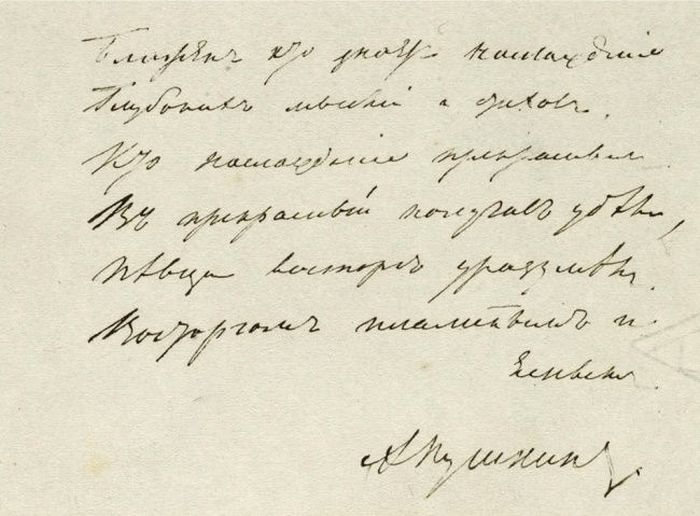 Блаженъ кто знаетъ наслажденіе
Глубокихъ мыслей и стиховъ.
Кто наслажденіе прекраснымъ
Въ прекрасный получилъ удѣлъ,
Пѣвца восторгъ уразумѣлъ
Восторгомъ пламеннымъ и
яснымъ
А Пушкинъ